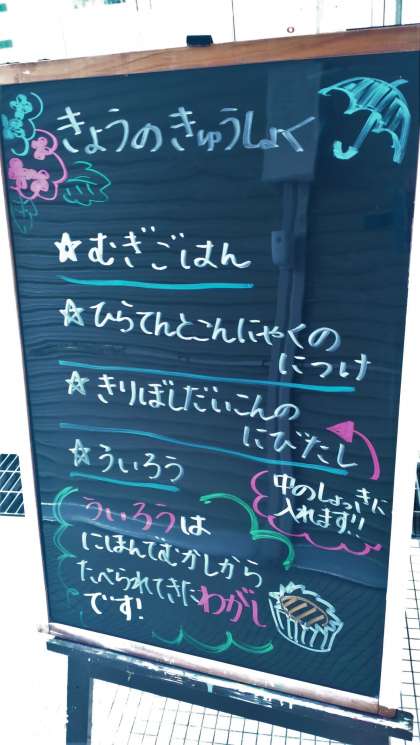 きょうのきゅうしょく
☆むぎごはん
☆ひらてんとこんにゃくの
につけ
☆きりぼしだいこんの
にびたし
☆ういろう
中のしょっきに
入れます!!
ういろうは
にほんでむかしから
たべられてきたわがし
です!